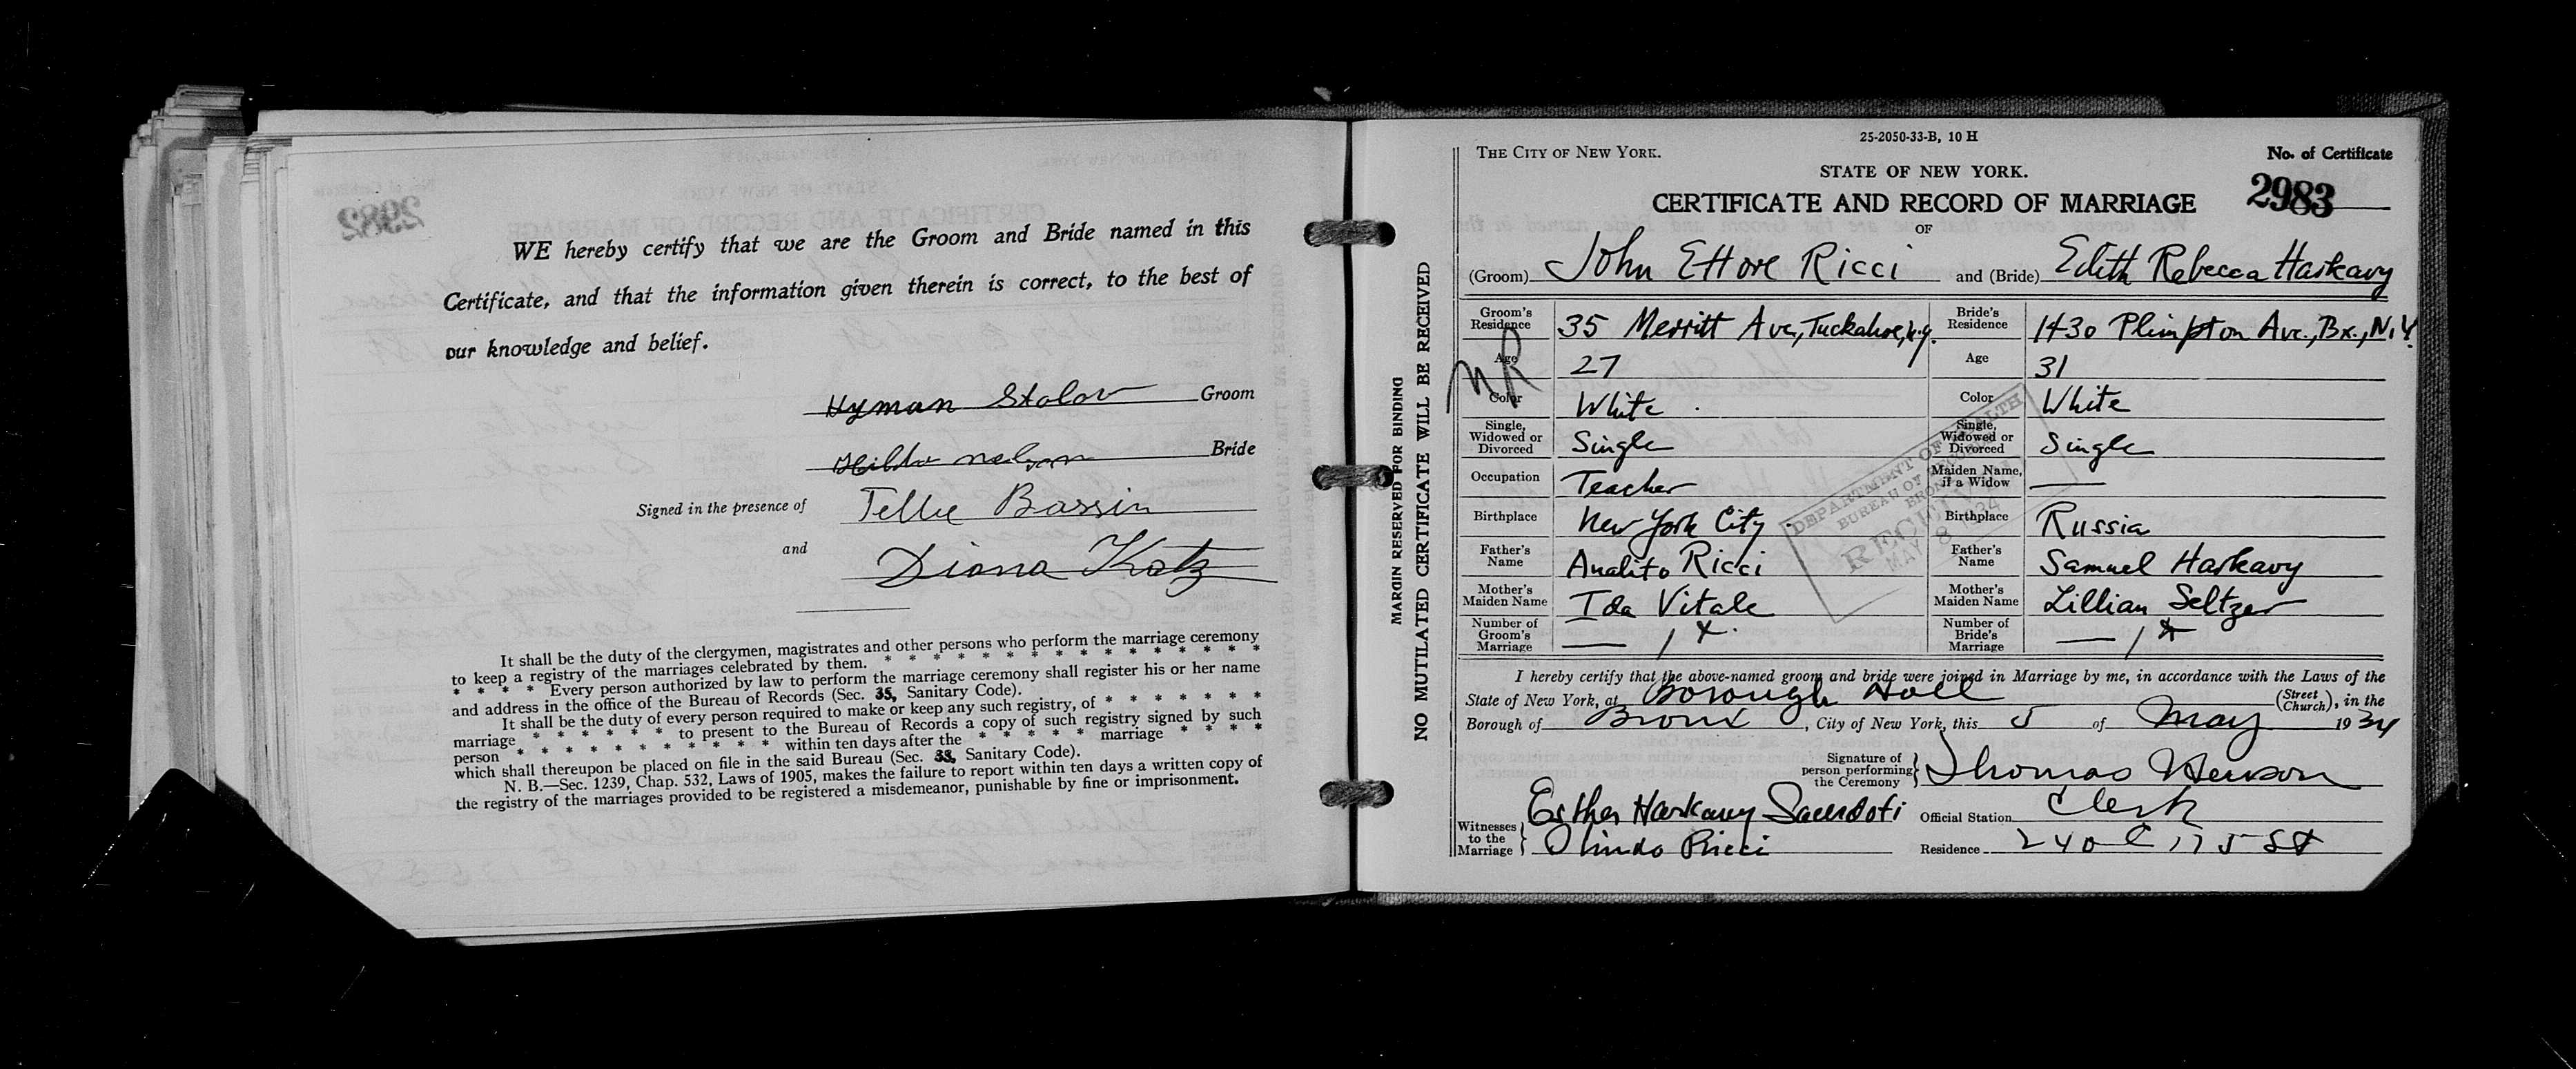 WE hereby certify that we are the Groom and Bride named in this
Certificate, and that the information given therein is correct, to the best of
our knowledge and belief.
Hyman Stolov Groom
Hilda Nelson Bride
Signed in the presence of Tellie Bassin
and Diana Katz
It shall be the duty of the clergymen, magistrates and other persons who perform the marriage ceremony
to keep a registry of the marriages celebrated by them. * * * * * * * * * * * * * * * *
* * * * Every person authorized by law to perform the marriage ceremony shall register his or her name
and address in the office of the Bureau of Records (Sec. 35, Sanitary Code).
It shall be the duty of every person required to make or keep any such registry, of * * * * * * *
marriage * * * * * * to present to the Bureau of Records a copy of such registry signed by such
person * * * * * * * * * * * within ten days after the * * * * * marriage * * * *
which shall thereupon be placed on file in the said Bureau (Sec. 33, Sanitary Code).
N. B.—Sec. 1239, Chap. 532, Laws of 1905, makes the failure to report within ten days a written copy of
the registry of the marriages provided to be registered a misdemeanor, punishable by fine or imprisonment.
MARGIN RESERVED FOR BINDING
NO MUTILATED CERTIFICATE WILL BE RECEIVED
25-2050-33-B, 10 H
THE CITY OF NEW YORK.
No. of Certificate
STATE OF NEW YORK.
2983
CERTIFICATE AND RECORD OF MARRIAGE
OF
(Groom) John Ettore Ricci and (Bride) Edith Rebecca Harkavy
Groom's Residence 35 Merritt Ave, Tuckahoe, N.Y. Bride's Residence 1430 Plimpton Ave., Bx., N.Y.
NR
Age 27 Age 31
Color White Color White
Single, Widowed or Divorced Single Single, Widowed or Divorced Single
Occupation Teacher Maiden Name, if a Widow —
Birthplace New York City Birthplace Russia
Father's Name Analito Ricci Father's Name Samuel Harkavy
Mother's Maiden Name Ida Vitale Mother's Maiden Name Lillian Seltzer
Number of Groom's Marriage — 1 Number of Bride's Marriage — 1
DEPARTMENT OF HEALTH
BUREAU OF RECORDS
BRONX
RECEIVED
MAY 8 1934
I hereby certify that the above-named groom and bride were joined in Marriage by me, in accordance with the Laws of the
State of New York, at Borough Hall (Street Church), in the
Borough of Bronx, City of New York, this 5 of May 1934
Signature of person performing the Ceremony Thomas Henson
Witnesses to the Marriage Esther Harkavy Sacerdoti Official Station Clerk
Olindo Ricci Residence 240 E 175 St